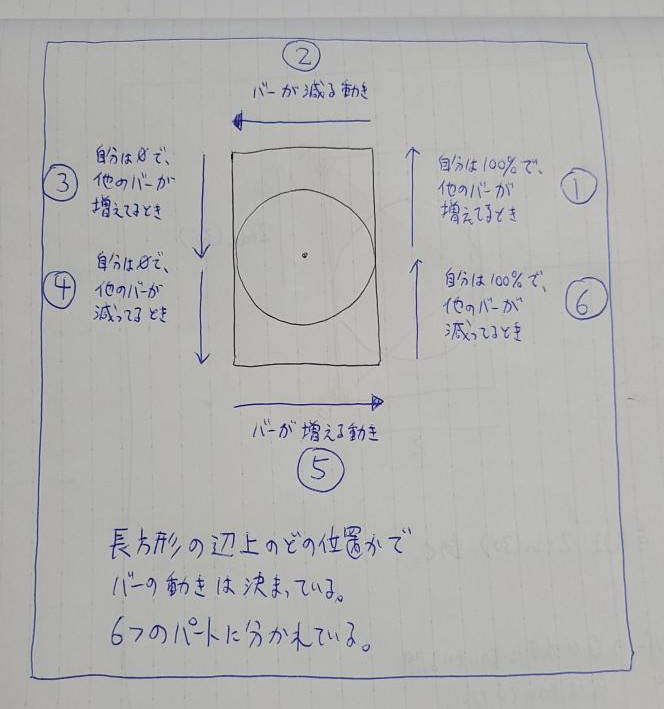 ②
バーが減る動き
③
自分は0で、
他のバーが
増えてるとき
自分は100%で、
他のバーが
増えてるとき
①
④
自分は0で、
他のバーが
減ってるとき
自分は100%で、
他のバーが
減ってるとき
⑥
バーが増える動き
⑤
長方形の辺上のどの位置かで
バーの動きは決まっている。
6つのパートに分かれている。